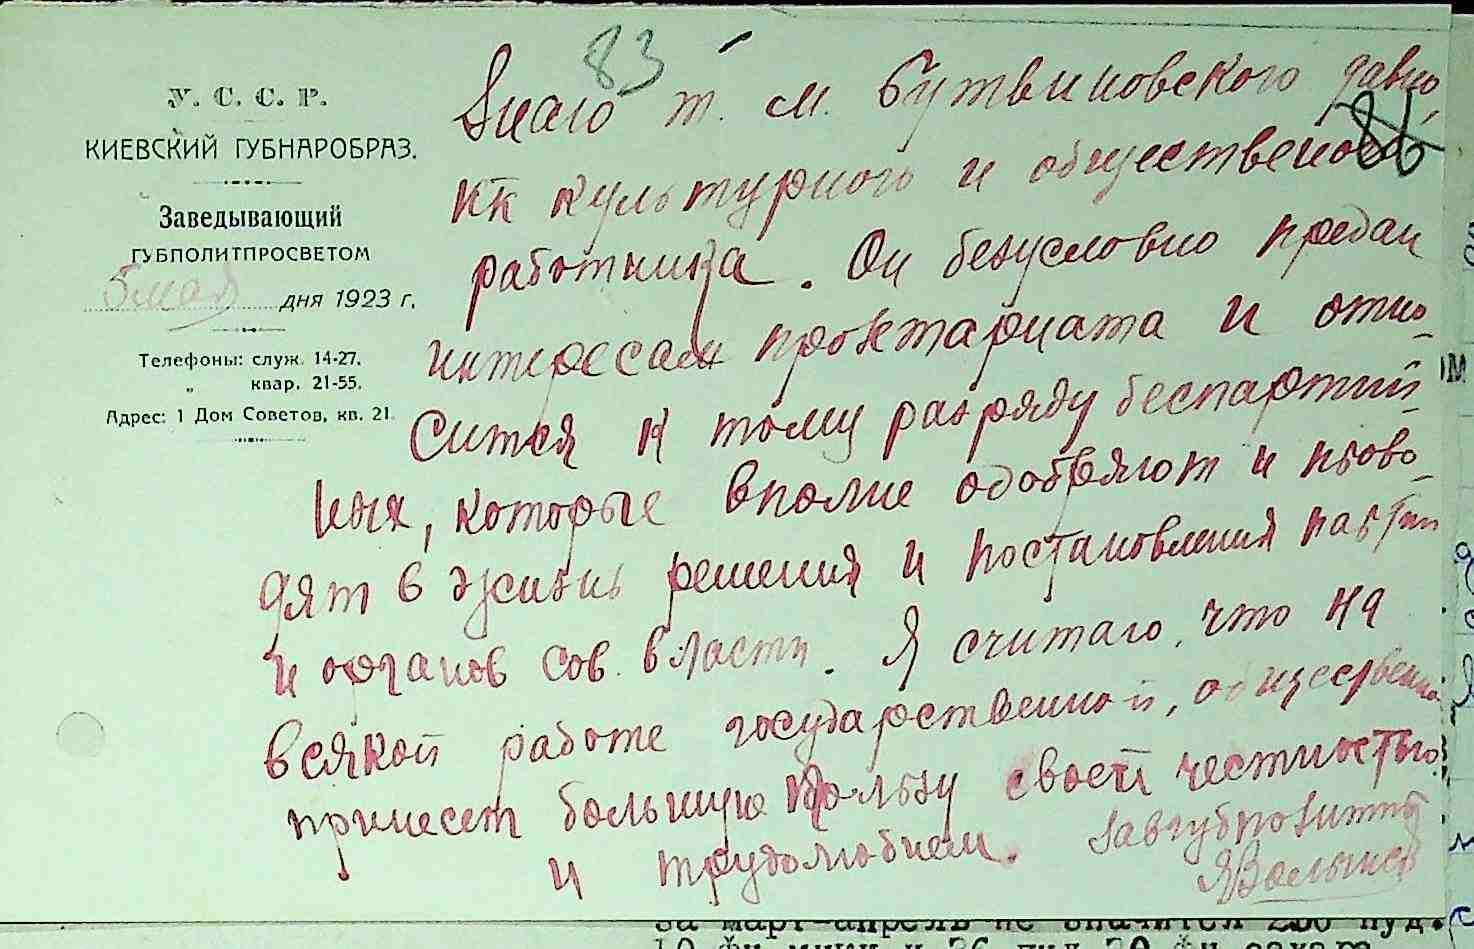 83
86
У. С. С. Р.
КИЕВСКИЙ ГУБНАРОБРАЗ.
Заведывающий
ГУБПОЛИТПРОСВЕТОМ
5 мая дня 1923 г.
Телефоны: служ. 14-27.
„ квар. 21-55.
Адрес: 1 Дом Советов, кв. 21.
Знаю т. М. Бутвиновского давно,
кк культурного и общественого
работника. Он безусловно предан
интересам пролетариата и отно-
сится к тому разряду беспартий-
ных, которые вполне одобряют и прово-
дят в жизнь решения и постановления партии
и органов сов. власти. Я считаю, что на
всякой работе государственной, общественной
принесет большую пользу своей честностью
и трудолюбием.
ЯВолынск
за март-апрель не значится 250 пуд.